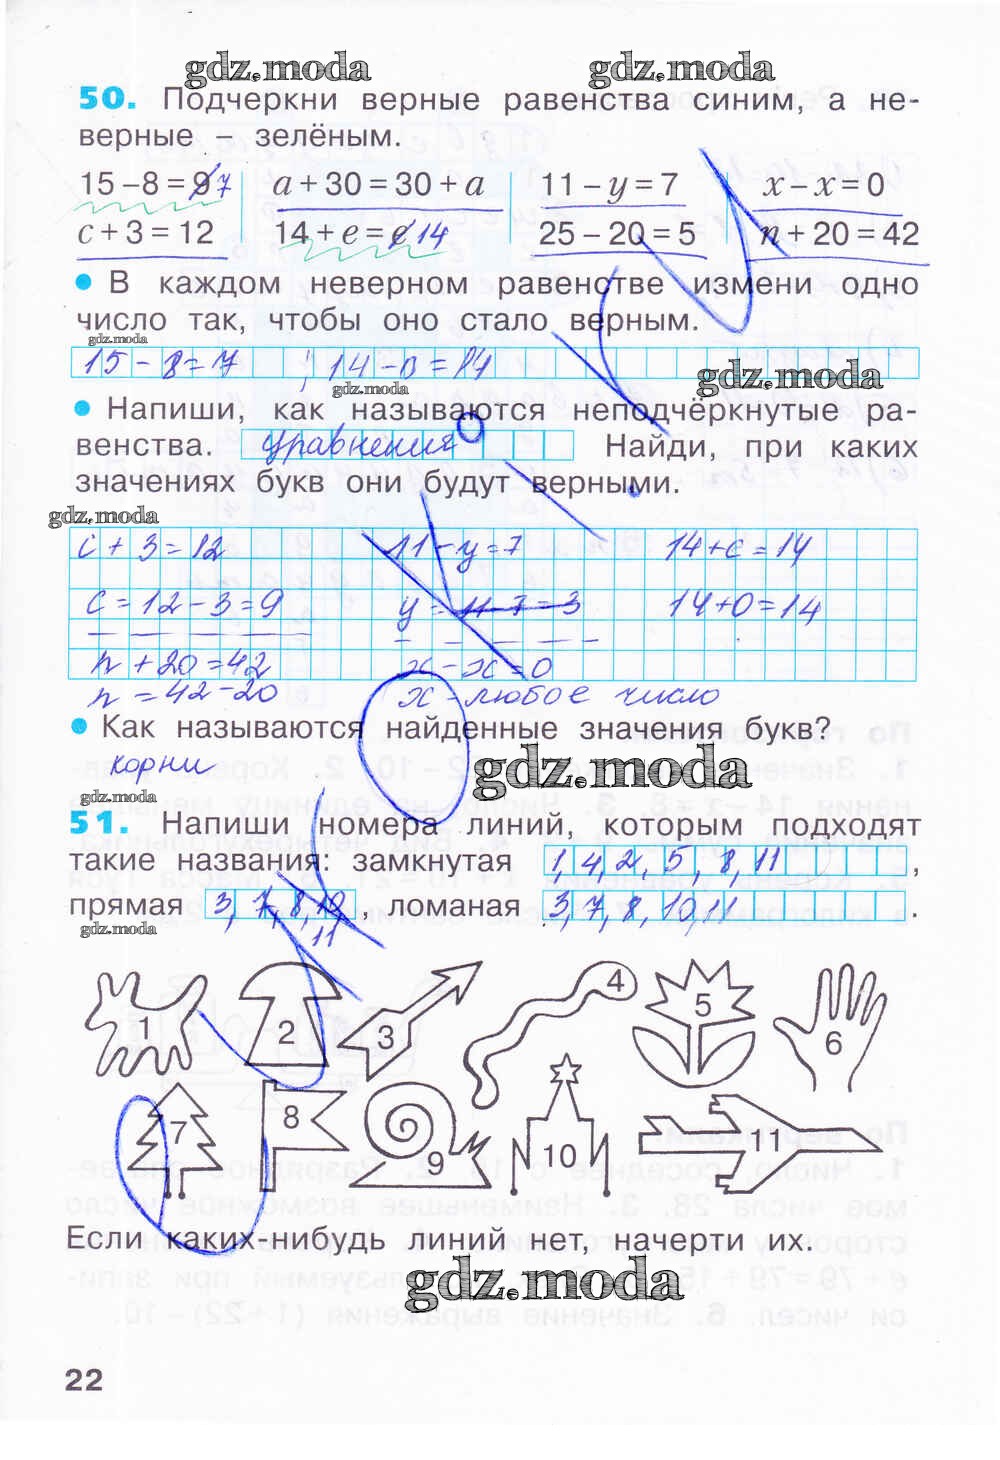 gdz.moda gdz.moda
50. Подчеркни верные равенства синим, а не-
верные – зелёным.
15 – 8 = 9 7 a + 30 = 30 + a 11 – y = 7 x – x = 0
c + 3 = 12 14 + e = e 14 25 – 20 = 5 n + 20 = 42
• В каждом неверном равенстве измени одно
число так, чтобы оно стало верным.
gdz.moda
15 – 8 = 7 , 14 – 0 = 14
gdz.moda gdz.moda
• Напиши, как называются неподчёркнутые ра-
венства. уравнения Найди, при каких
значениях букв они будут верными.
gdz.moda
c + 3 = 12 11 – y = 7 14 + e = 14
c = 12 – 3 = 9 y = 11 – 7 = 3 14 + 0 = 14
n + 20 = 42 x – x = 0
n = 42 – 20 x – любое число
• Как называются найденные значения букв?
корни gdz.moda
gdz.moda
51. Напиши номера линий, которым подходят
такие названия: замкнутая 1, 4, 2, 5, 8, 11 ,
прямая 3, 7, 8, 10, 11 ломаная 3, 7, 8, 10, 11 .
gdz.moda
1 2 3 4 5 6
7 8 9 10 11
Если каких-нибудь линий нет, начерти их.
gdz.moda
22